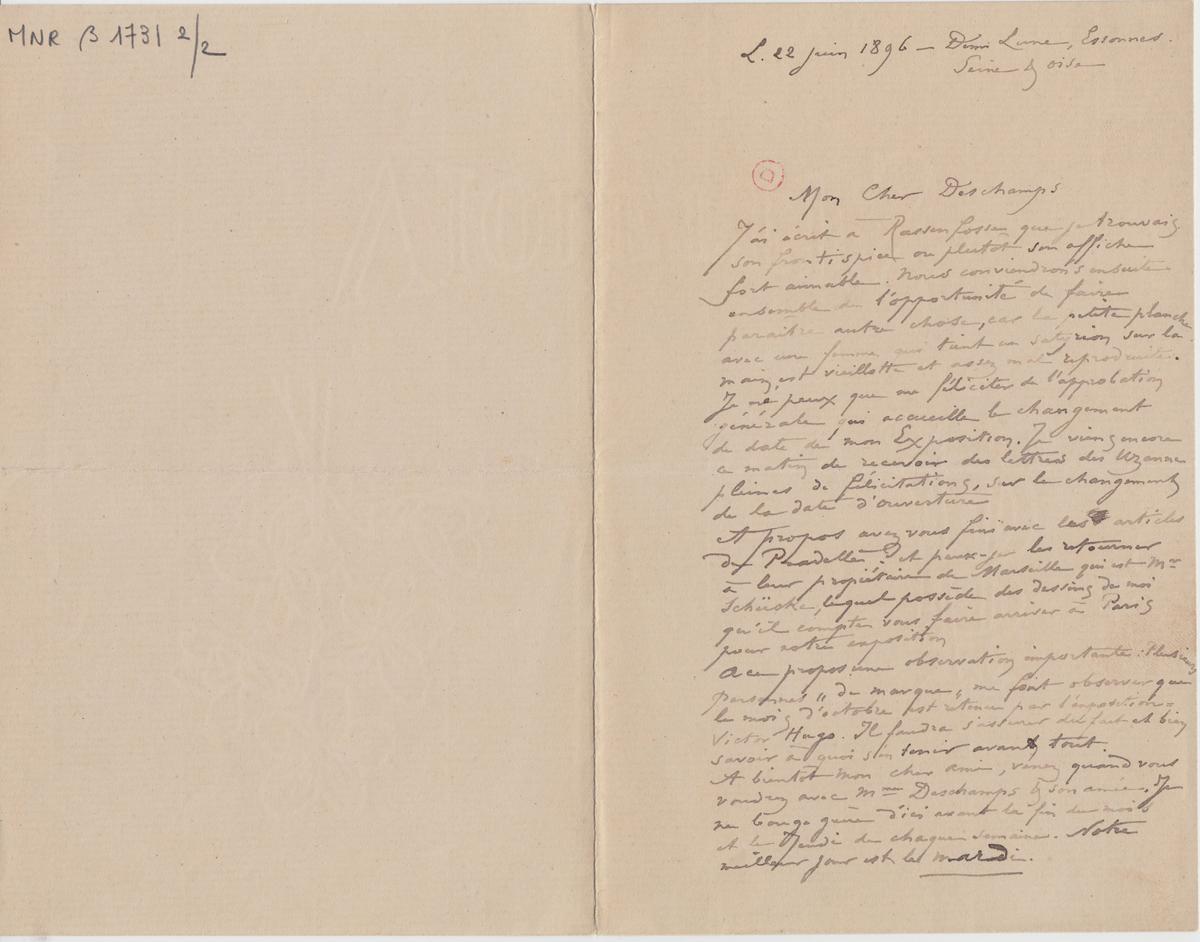 MNR β 1731 2/2
L. 22 juin 1896 — Demi Lune, Essonnes.
Seine & Oise
Mon Cher Deschamps
J'ai écrit à Rassenfosse que je trouvais
son frontispice ou plutôt son affiche
fort aimable. Nous conviendrons ensuite
ensemble de l'opportunité de faire
paraître autre chose, car la petite planche
avec une femme qui tient un satyrion sur la
main, est vieillotte et assez mal reproduite.
Je ne peux que me féliciter de l'approbation
générale qui accueille le changement
de date de mon Exposition. Je viens encore
ce matin de recevoir des lettres des Uzanne
pleines de félicitations, sur le changement
de la date d'ouverture
A propos avez vous fini avec les articles
de Pradelle ? et peux-je les retourner
à leur propriétaire de Marseille qui est Mr
Schücke, lequel possède des dessins de moi
qu'il compte vous faire arriver à Paris
pour notre exposition
A ce propos une observation importante : Plusieurs
personnes " de marque " me font observer que
le mois d'octobre est retenu par l'exposition =
Victor Hugo. Il faudra s'assurer du fait et bien
savoir à quoi s'en tenir avant tout.
A bientôt mon cher ami, venez quand vous
voudrez avec Mme Deschamps & son amie. Je
ne bouge guère d'ici avant la fin du mois
et le Jeudi de chaque semaine. Notre
meilleur jour est le mardi.